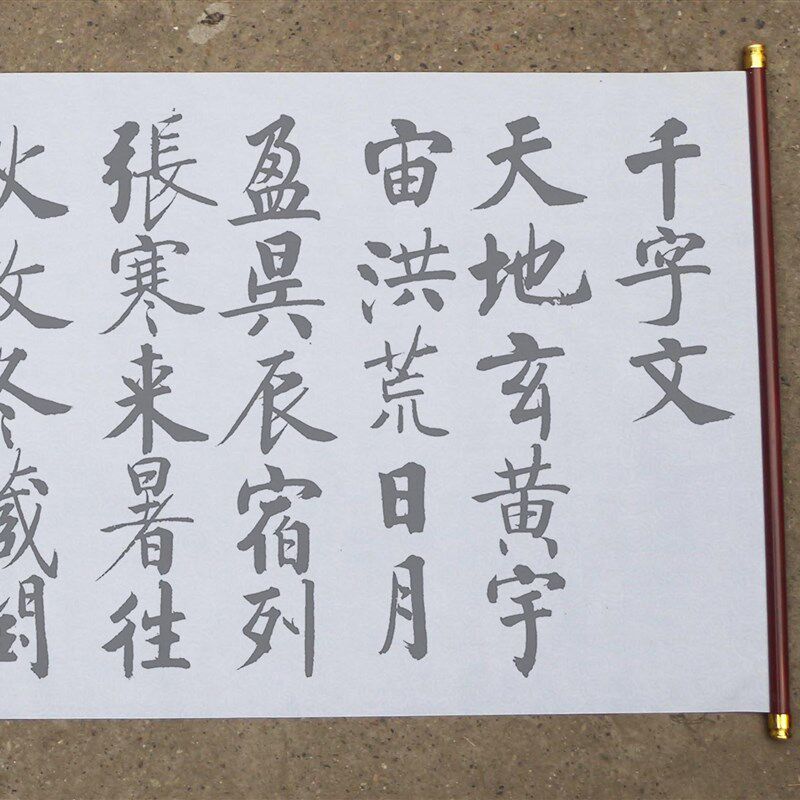 千字文
天地玄黄宇
宙洪荒日月
盈昃辰宿列
張寒来暑往
秋收冬蔵閏